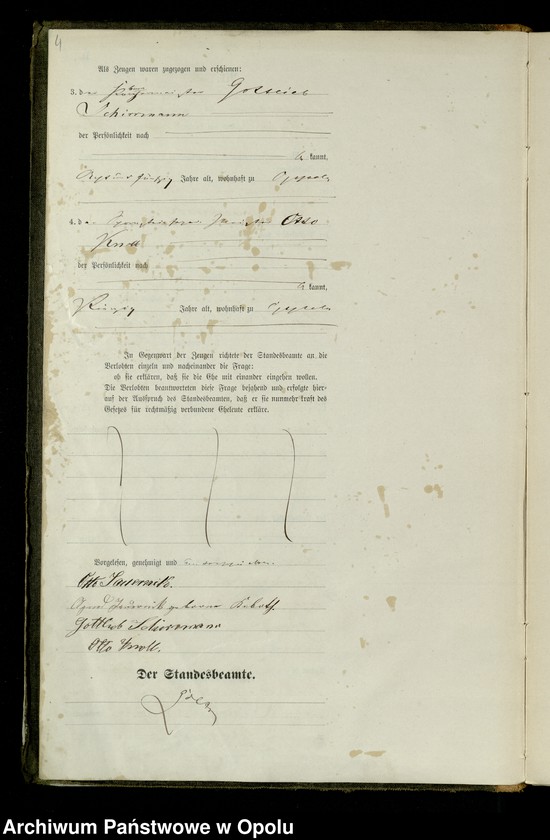 4
Als Zeugen waren zugezogen und erschienen:
3. der Gottlieb
Schirrmann
der Persönlichkeit nach
kannt,
Jahre alt, wohnhaft zu Oppeln
4. der Otto
Knoll
der Persönlichkeit nach
kannt,
Jahre alt, wohnhaft zu Oppeln
In Gegenwart der Zeugen richtete der Standesbeamte an die
Verlobten einzeln und nacheinander die Frage:
ob sie erklären, daß sie die Ehe mit einander eingehen wollen.
Die Verlobten beantworteten diese Frage bejahend und erfolgte hier-
auf der Ausspruch des Standesbeamten, daß er sie nunmehr kraft des
Gesetzes für rechtmäßig verbundene Eheleute erkläre.
Vorgelesen, genehmigt und unterschrieben
Otto
geborene
Gottlieb Schirrmann
Otto Knoll.
Der Standesbeamte.
Archiwum Państwowe w Opolu